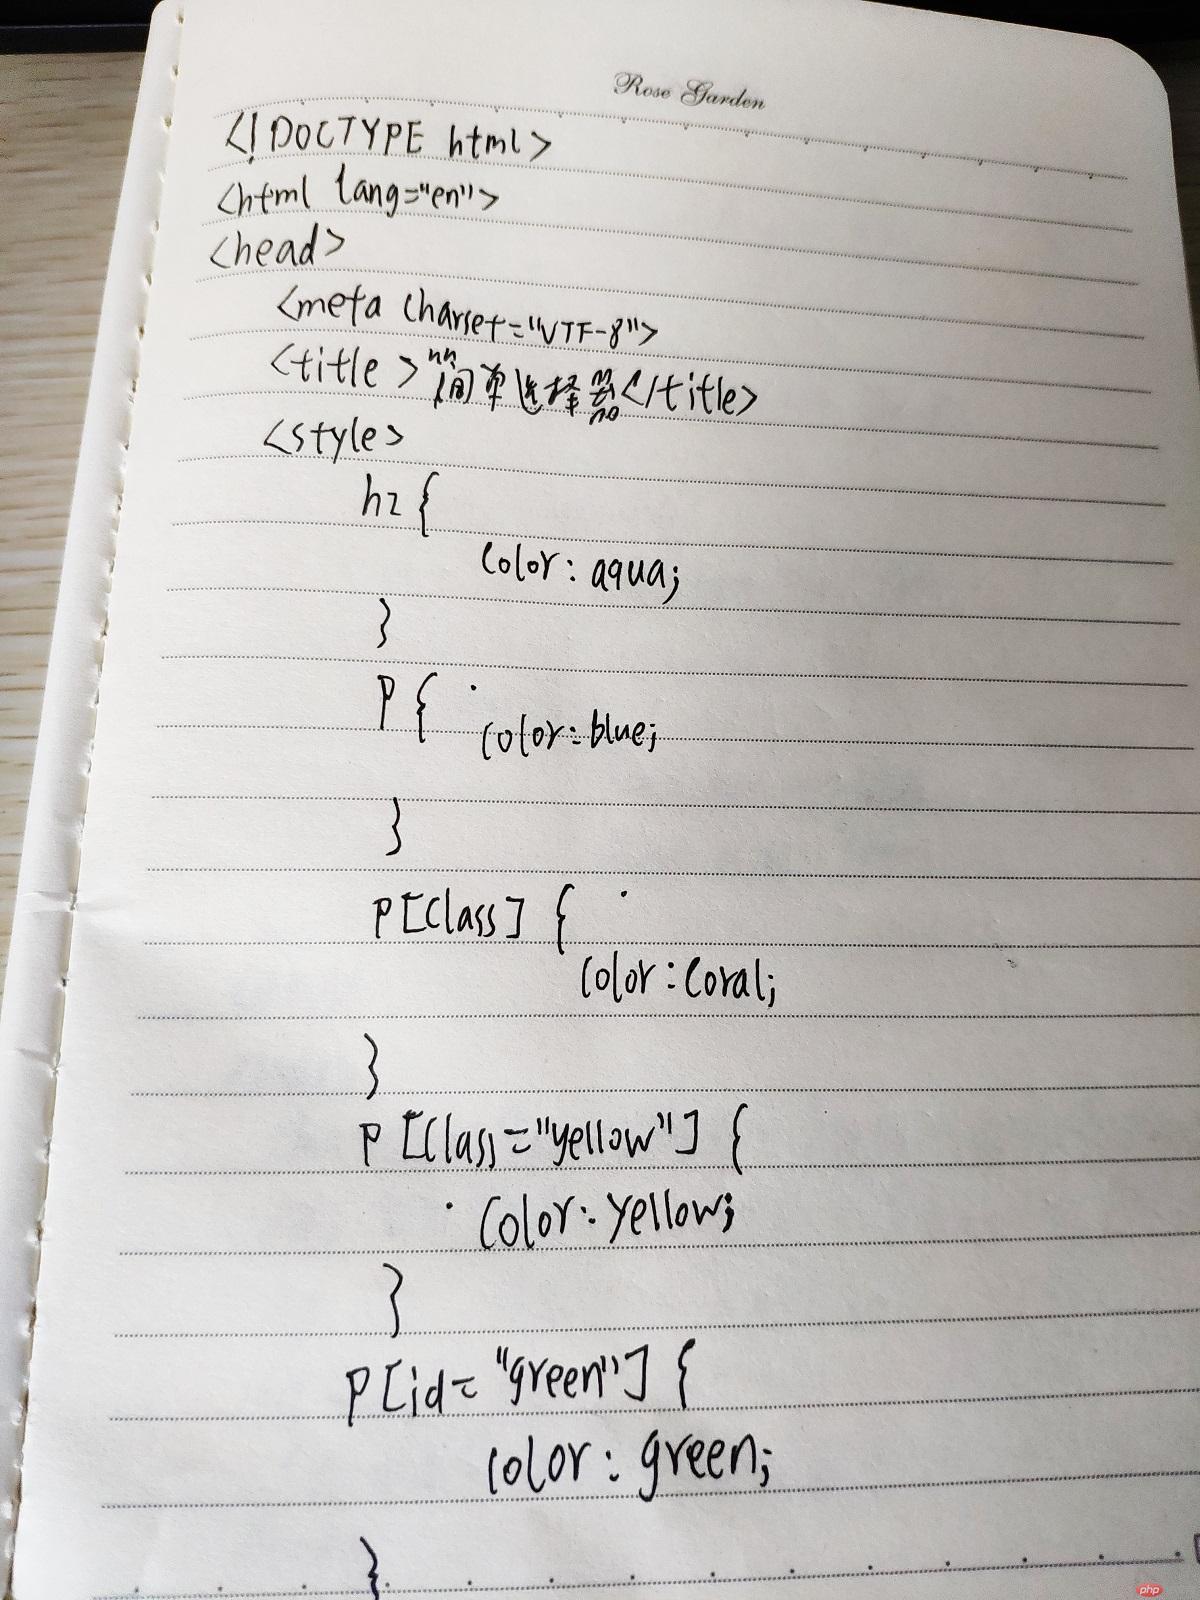 Rose Garden
<!DOCTYPE html>
<html lang="en">
<head>
<meta charset="UTF-8">
<title>简单选择器</title>
<style>
h2 {
color: aqua;
}
p {
color: blue;
}
p[class] {
color: coral;
}
p[class="yellow"] {
color: yellow;
}
p[id="green"] {
color: green;
}
php